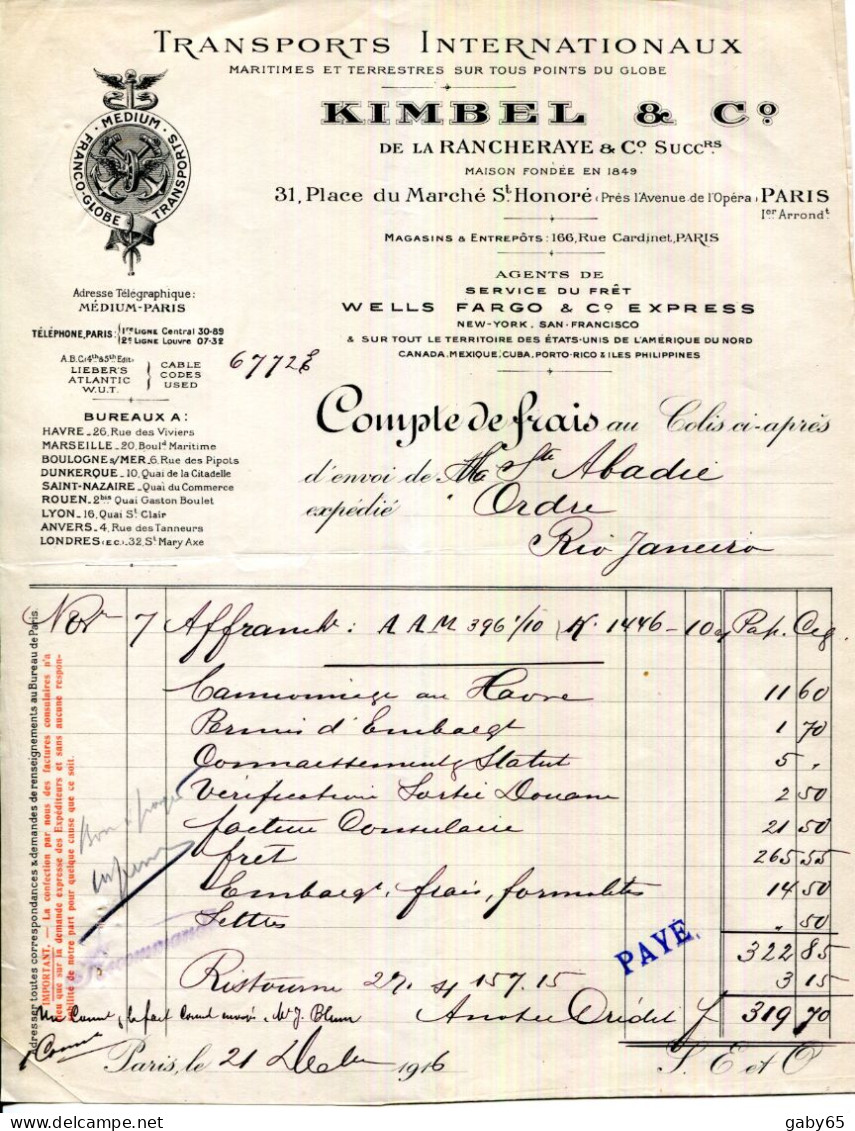 TRANSPORTS INTERNATIONAUX
MARITIMES ET TERRESTRES SUR TOUS POINTS DU GLOBE
KIMBEL & Cº
DE LA RANCHERAYE & Cº SUCCRS
MAISON FONDÉE EN 1849
31, Place du Marché St Honoré (Près l'Avenue de l'Opéra) PARIS
1er Arrondt
MAGASINS & ENTREPÔTS: 166, Rue Cardinet, PARIS
AGENTS DE
SERVICE DU FRÊT
WELLS FARGO & Cº EXPRESS
NEW-YORK, SAN-FRANCISCO
& SUR TOUT LE TERRITOIRE DES ÉTATS-UNIS DE L'AMÉRIQUE DU NORD
CANADA, MEXIQUE, CUBA, PORTO-RICO & ILES PHILIPPINES
MEDIUM
FRANCO-GLOBE TRANSPORTS
Adresse Télégraphique:
MÉDIUM-PARIS
TÉLÉPHONE, PARIS: 1re LIGNE Central 30-89
2e LIGNE Louvre 07-32
A.B.C. (4th & 5th Edit.)
LIEBER'S
ATLANTIC
W.U.T.
CABLE
CODES
USED
6772
BUREAUX A:
HAVRE_26, Rue des Viviers
MARSEILLE_20, Boulд Maritime
BOULOGNE s/MER_6, Rue des Pipots
DUNKERQUE_10, Quai de la Citadelle
SAINT-NAZAIRE_Quai du Commerce
ROUEN_2bis Quai Gaston Boulet
LYON_16, Quai St Clair
ANVERS_4, Rue des Tanneurs
LONDRES (E.C.)_32, St Mary Axe
Compte de frais au Colis ci-après
d'envoi de la Sté Abadie
expédié Ordre
Rio Janeiro
Nov 7 Affranch: AAM 396 1/10 K. 1446 - 10 Pap. Cig.
Camionnage au Havre 11 60
Permis d'Embarqt 1 70
Connaissement & Statut 5 "
Vérification Sortie Douane 2 50
facture Consulaire 21 50
frêt 265 55
Embarqt, frais, formalités 14 50
Lettres " 50
322 85
Ristourne 2% s/ 157.15 3 15
A notre Crédit f 319 70
PAYÉ.
Recommandé
Mr J. Blum
Paris, le 21 1916
S. E. et O.
Adresses toutes correspondances & demandes de renseignements au Bureau de Paris.
IMPORTANT. — La confection par nous des factures consulaires n'a
lieu que sur la demande expresse des Expéditeurs et sans aucune respon-
sabilité de notre part pour quelque cause que ce soit.
gaby65